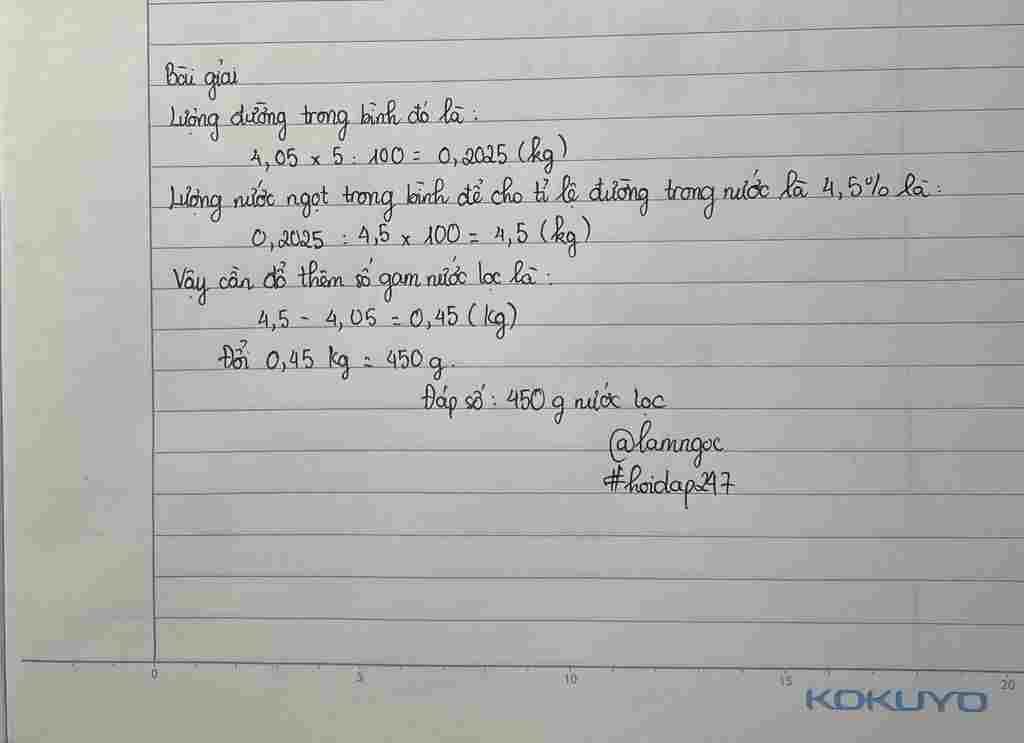 Bài giải
Lượng đường trong bình đó là:
4,05 × 5 : 100 = 0,2025 (kg)
Lượng nước ngọt trong bình để cho tỉ lệ đường trong nước là 4,5% là:
0,2025 : 4,5 × 100 = 4,5 (kg)
Vậy cần đổ thêm số gam nước lọc là:
4,5 - 4,05 = 0,45 (kg)
Đổi 0,45 kg = 450 g.
Đáp số: 450 g nước lọc
@lamngoc
#hoidap247
0 5 10 15 20
KOKUYO